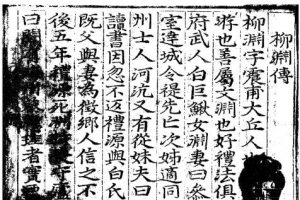 柳淵傳
柳淵字震甫大丘人
游也善屬文淵也好禮法俱
府武人白巨鰍女淵妻曰參
室達城令禔先亡次姉適同
州士人河沆又有從妹夫曰
讀書因忽不返禮源與白氏
旣父與妻為徵鄉人信之不
後五年禮源死
曰 者實